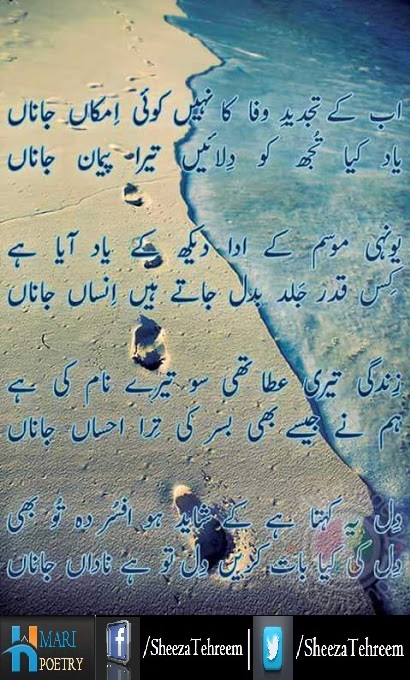 اب کے تجدیدِ وفا کا نہیں کوئی اِمکاں جاناں
یاد کیا تُجھ کو دِلائیں تیرا پیمان جاناں
یونہی موسم کے ادا دیکھ کے یاد آیا ہے
کِس قدر جَلد بدل جاتے ہیں اِنساں جاناں
زِندگی تیری عطا تھی سو تیرے نام کی ہے
ہم نے جیسے بھی بسر کی تِرا احساں جاناں
دِل یہ کہتا ہے کے شاید ہو افسُر دہ تُو بھی
دِل کی کیا بات کریں دِل تو ہے ناداں جاناں
MARI
POETRY
/SheezaTehreem
/SheezaTehreem